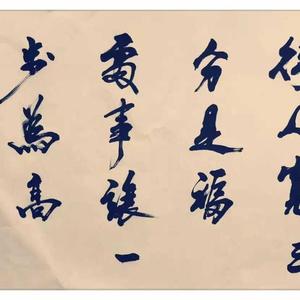 待人寬三
分是福
處事讓一
步為高